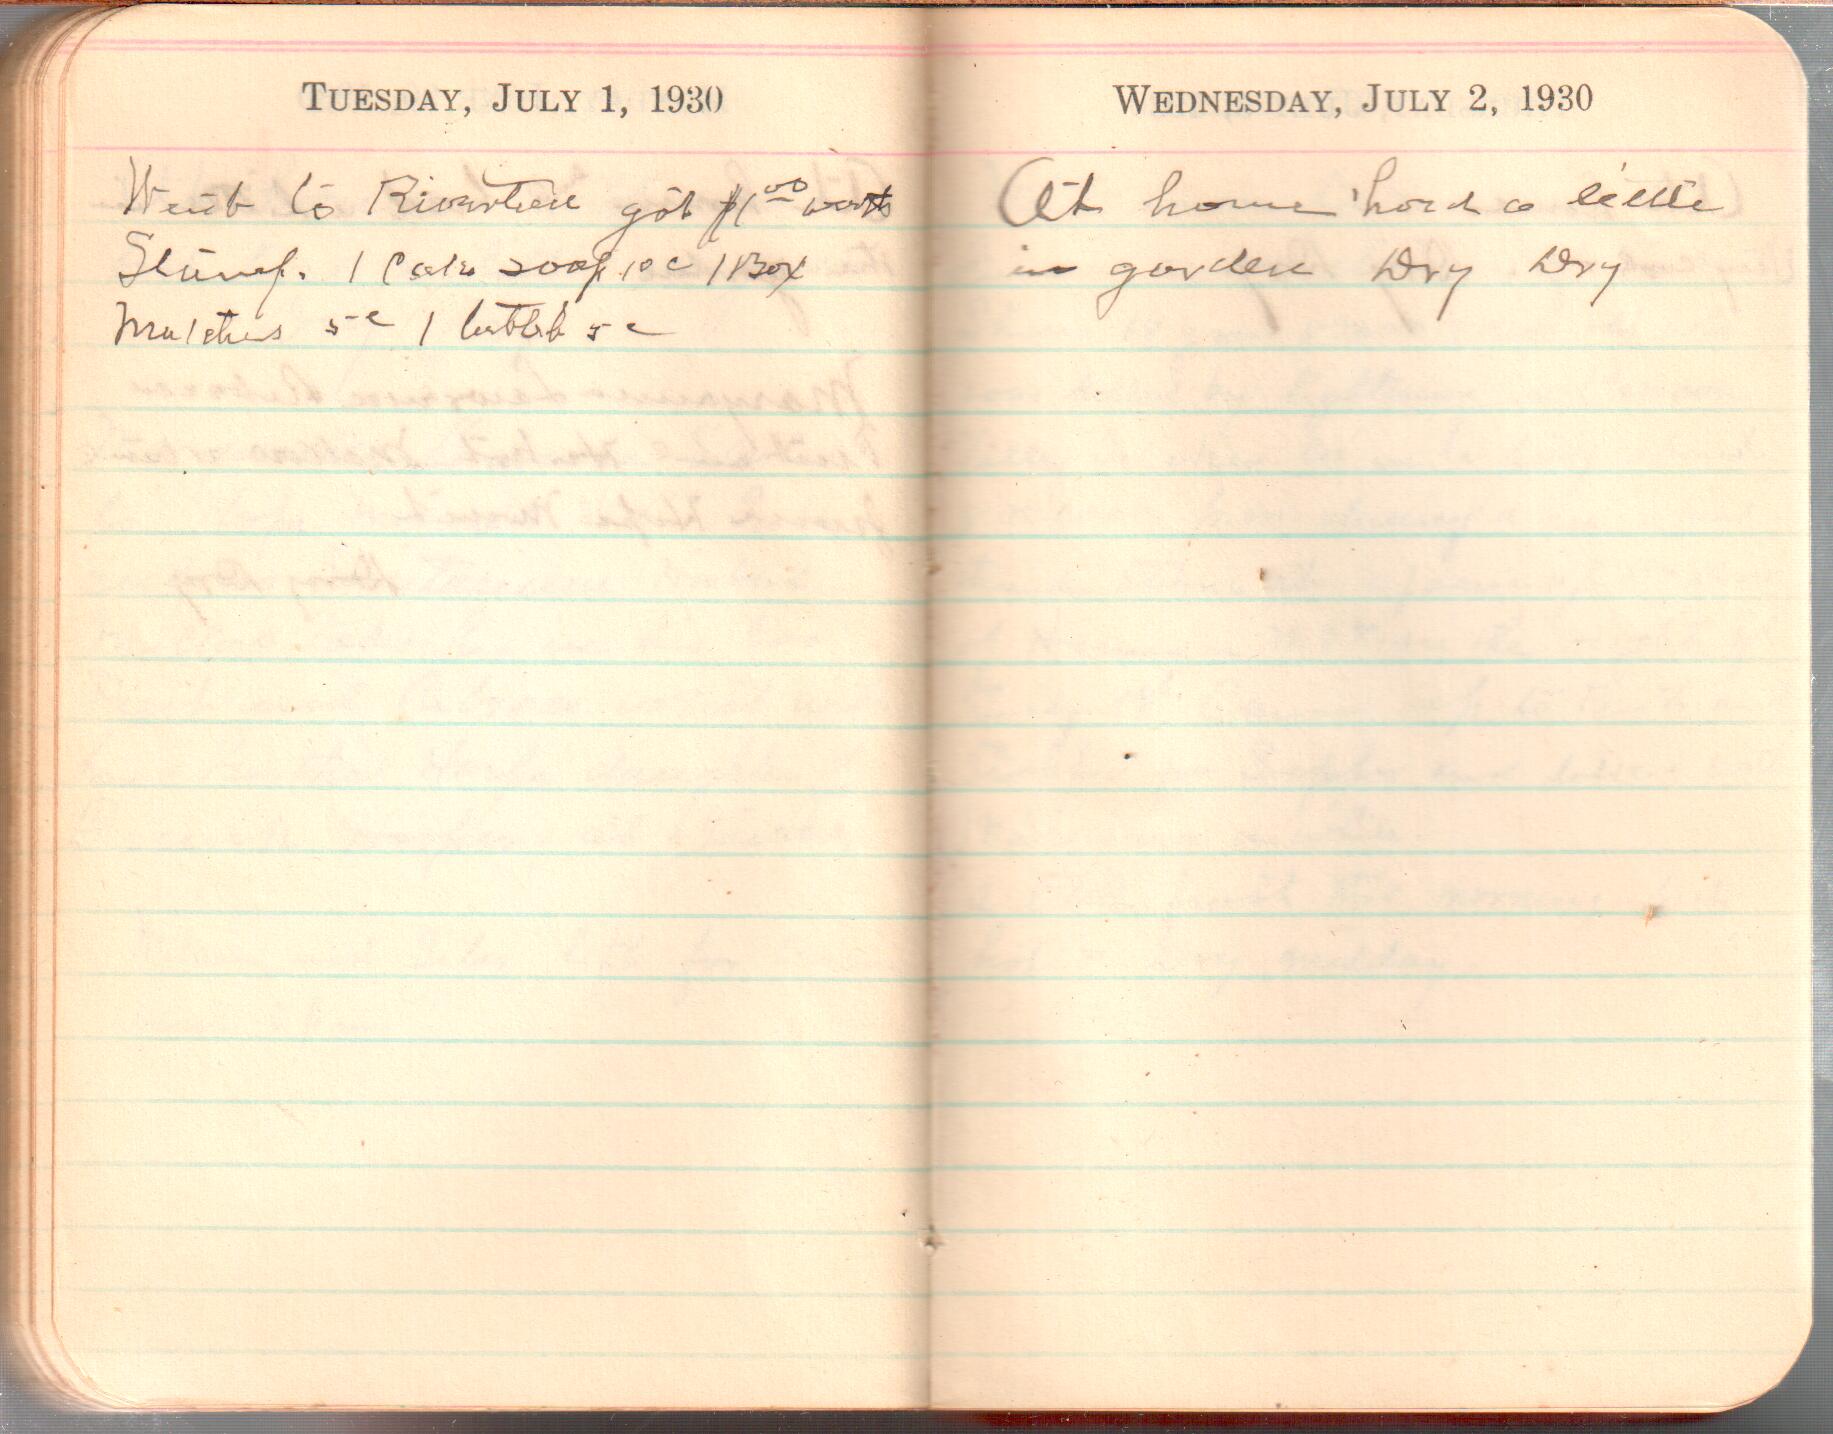 TUESDAY, JULY 1, 1930
Went to Riverton got $1.00 worth
Stamps. 1 Cake soap 10c 1 Box
Matches 5c 1 5c
WEDNESDAY, JULY 2, 1930
At home hoed a little
in garden Dry Dry